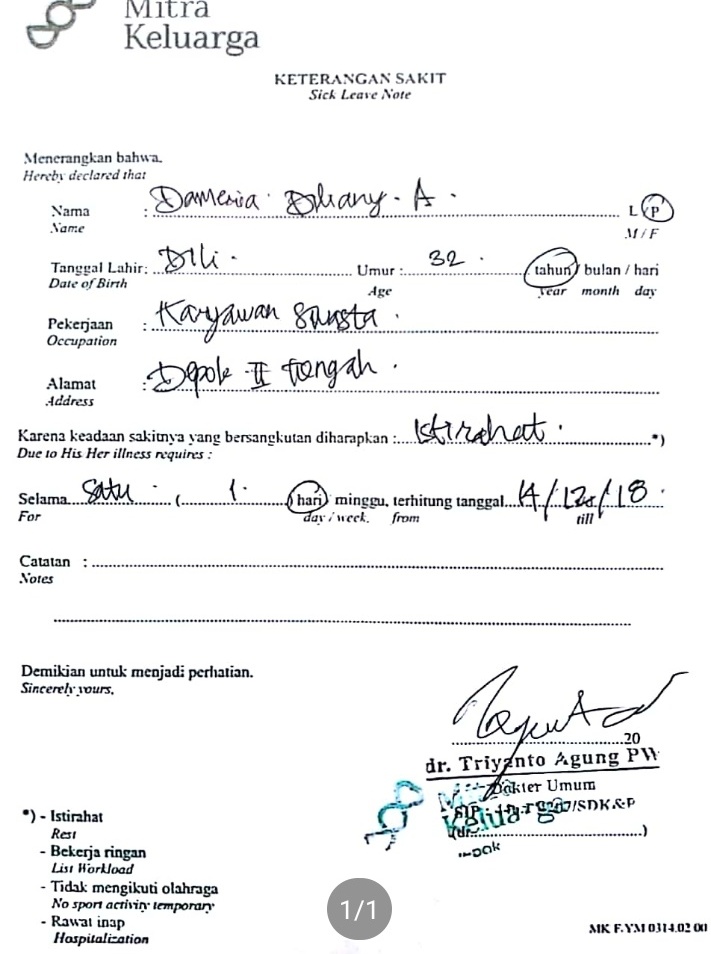 Mitra
Keluarga
KETERANGAN SAKIT
Sick Leave Note
Menerangkan bahwa.
Hereby declared that
Nama : Dameria A. L P
Name M / F
Tanggal Lahir: Dili. Umur : 32. tahun / bulan / hari
Date of Birth Age Year month day
Pekerjaan : Karyawan Swasta.
Occupation
Alamat : Depok II Tengah.
Address
Karena keadaan sakitnya yang bersangkutan diharapkan : Istirahat. *)
Due to His Her illness requires :
Selama Satu ( 1. ) hari / minggu, terhitung tanggal 14/12/18.
For day / week. from till
Catatan :
Notes
Demikian untuk menjadi perhatian.
Sincerely yours,
20
dr. Triyanto Agung PW
Dokter Umum
Keluarga /SDK&P
*) - Istirahat
Rest
- Bekerja ringan
List Workload
- Tidak mengikuti olahraga
No sport activity temporary
- Rawat inap
Hospitalization
1/1
MK F.YM 0314.02 00